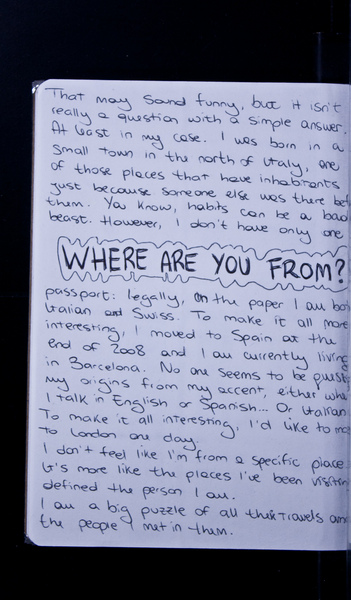 That may sound funny, but it isn't
really a question with a simple answer.
At least in my case. I was born in a
small town in the north of Italy, one
of those places that have inhabitants
just because someone else was there bef
them. You know, habits can be a bad
beast. However, I don't have only one
WHERE ARE YOU FROM?
passport: legally, on the paper I am bo
Italian and Swiss. To make it all more
interesting, I moved to Spain at the
end of 2008 and I am currently living
in Barcelona. No one seems to be
my origins from my accent, either whe
I talk in English or Spanish... Or Italian.
To make it all interesting, I'd like to mo
to London one day.
I don't feel like I'm from a specific place.
It's more like the places I've been visitin
defined the person I am.
I am a big puzzle of all the travels and
the people I met in them.